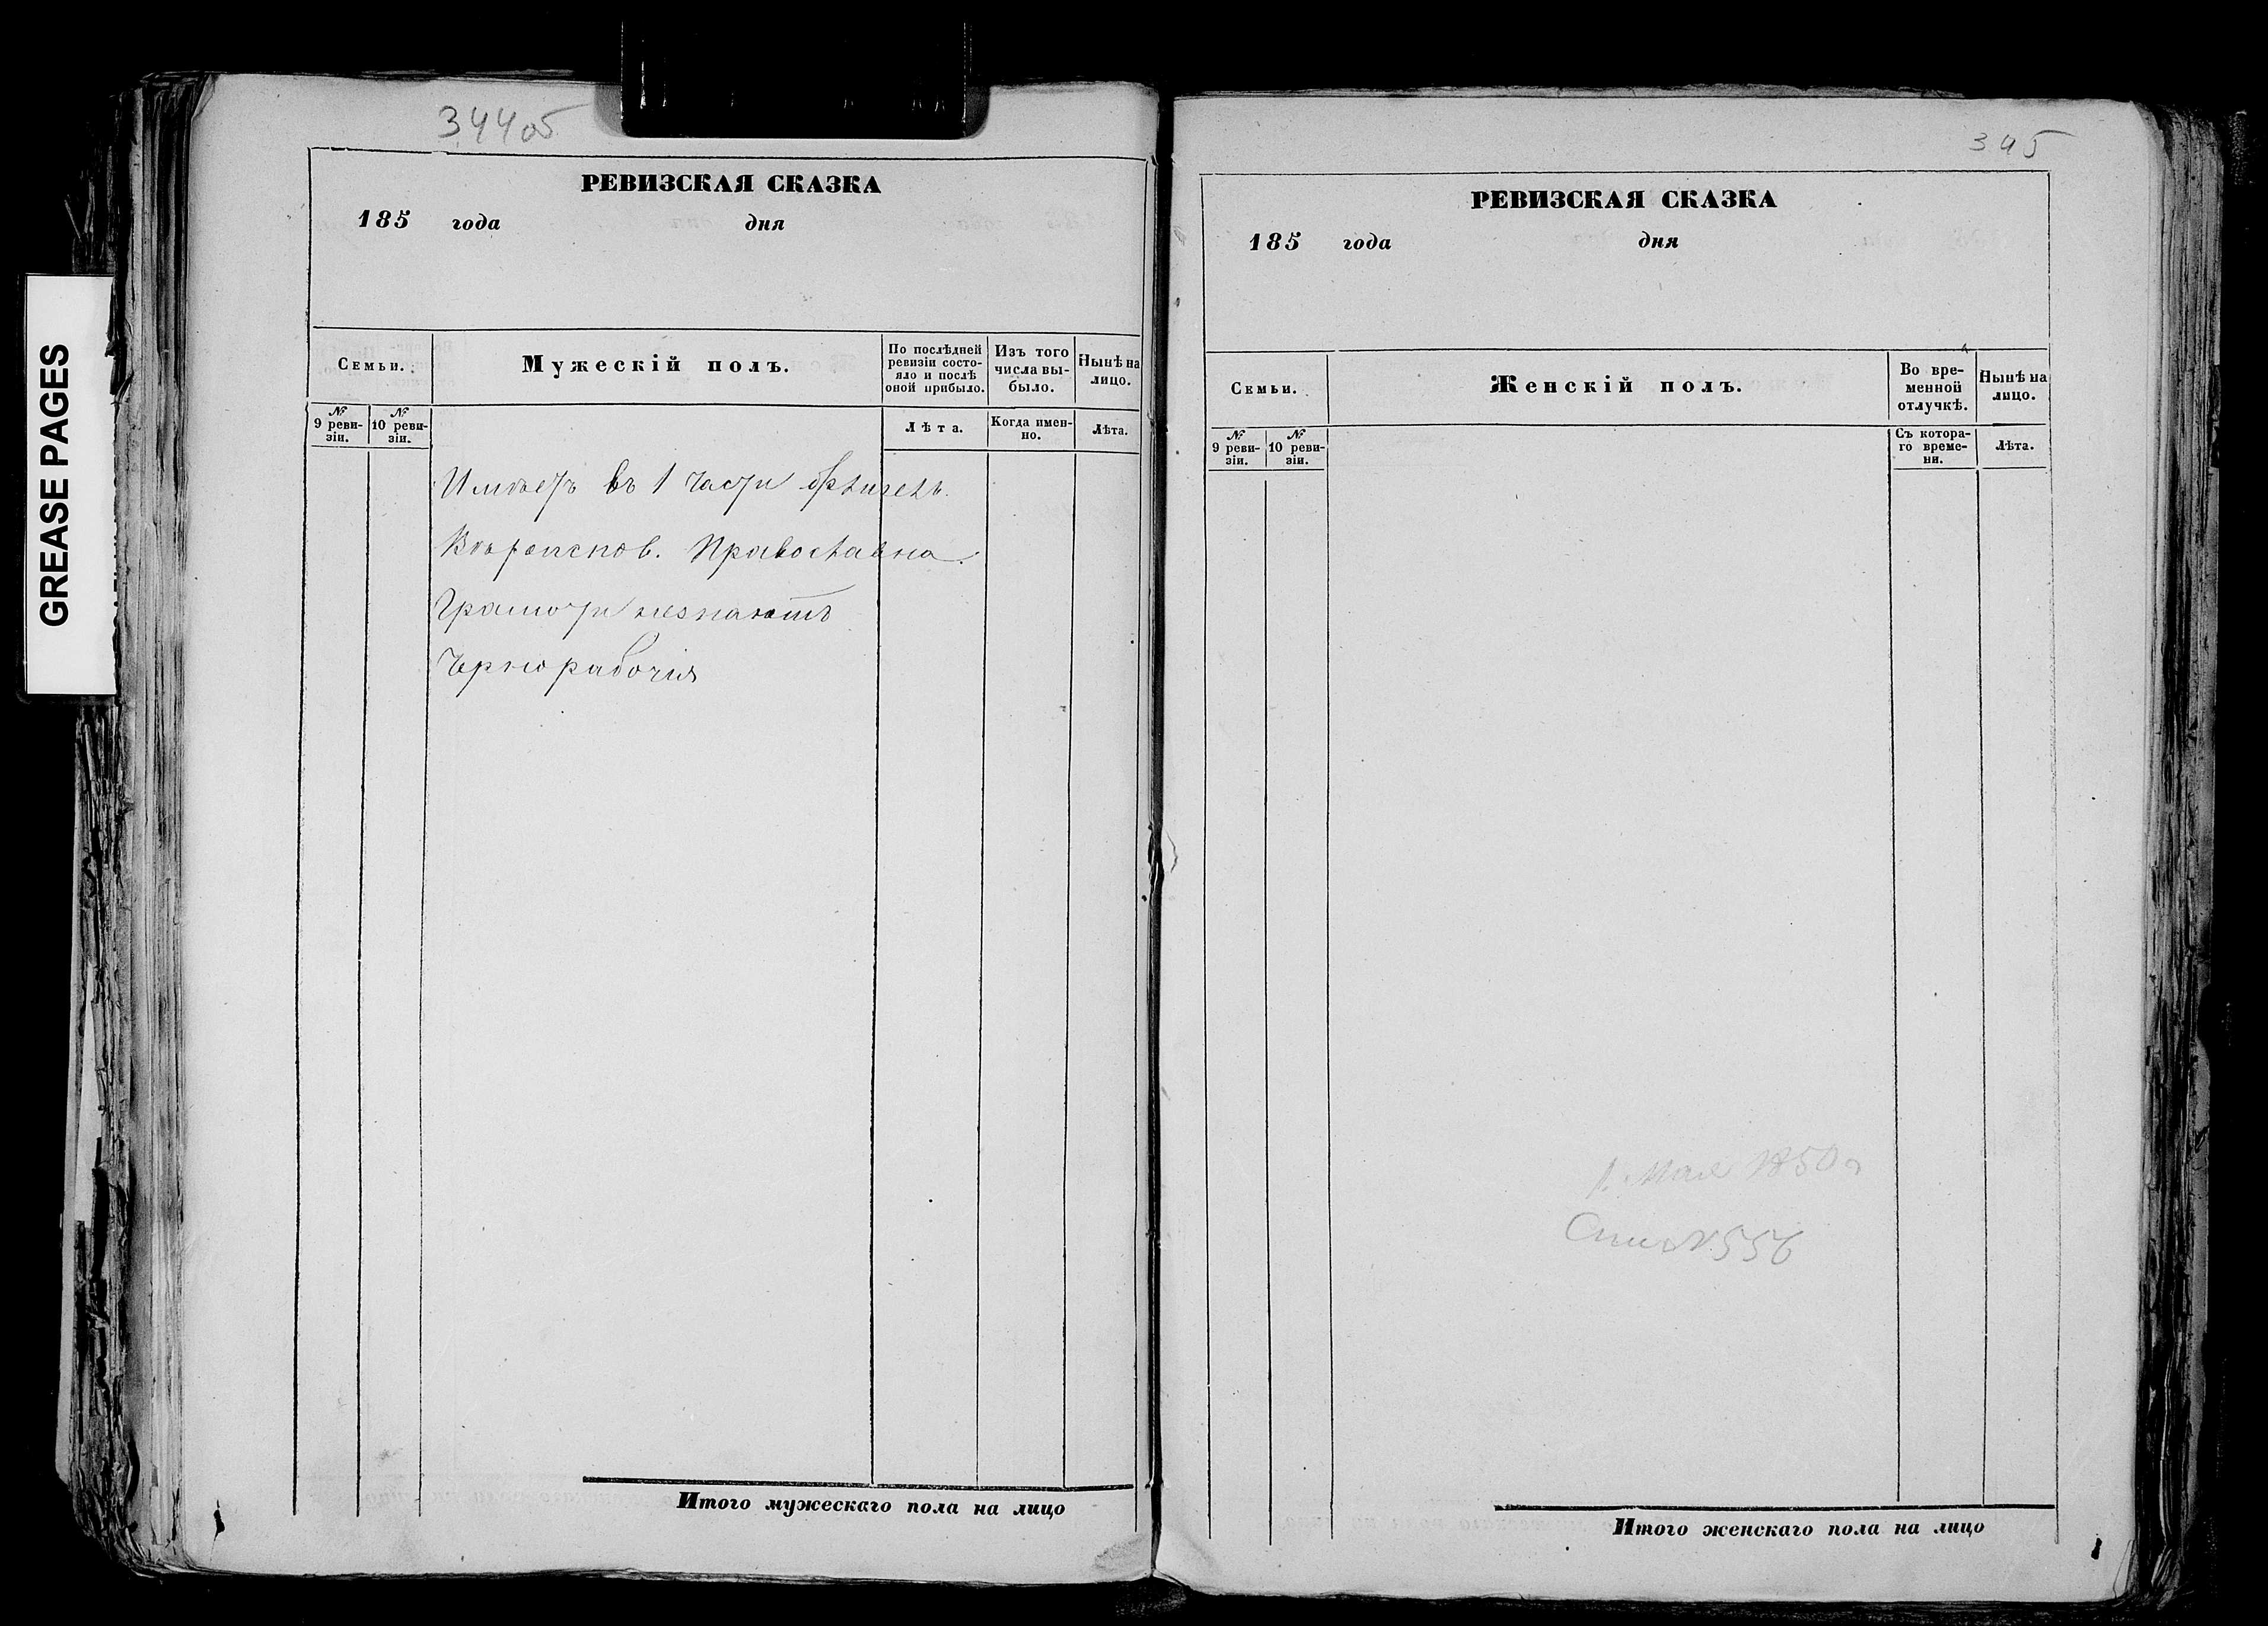 GREASE PAGES
344об
РЕВИЗСКАЯ СКАЗКА
185 года дня
Семьи.
Мужескій полъ.
По послѣдней ревизіи состо-
яло и послѣ
оной прибыло.
Изъ того
числа вы-
было.
Нынѣ на
лицо.
№
9 реви-
зіи.
№
10 реви-
зіи.
Лѣта.
Когда имен-
но.
Лѣта.
Имѣетъ въ 1 части
Вѣроиспов. Православна.
Грамоти незнаютъ
Чернорабочія
Итого мужескаго пола на лицо
345
РЕВИЗСКАЯ СКАЗКА
185 года дня
Семьи.
Женскій полъ.
Во вре-
менной
отлучкѣ.
Нынѣ на
лицо.
№
9 реви-
зіи.
№
10 реви-
зіи.
Съ котора-
го време-
ни.
Лѣта.
1. Мая 1850 г
556
Итого женскаго пола на лицо